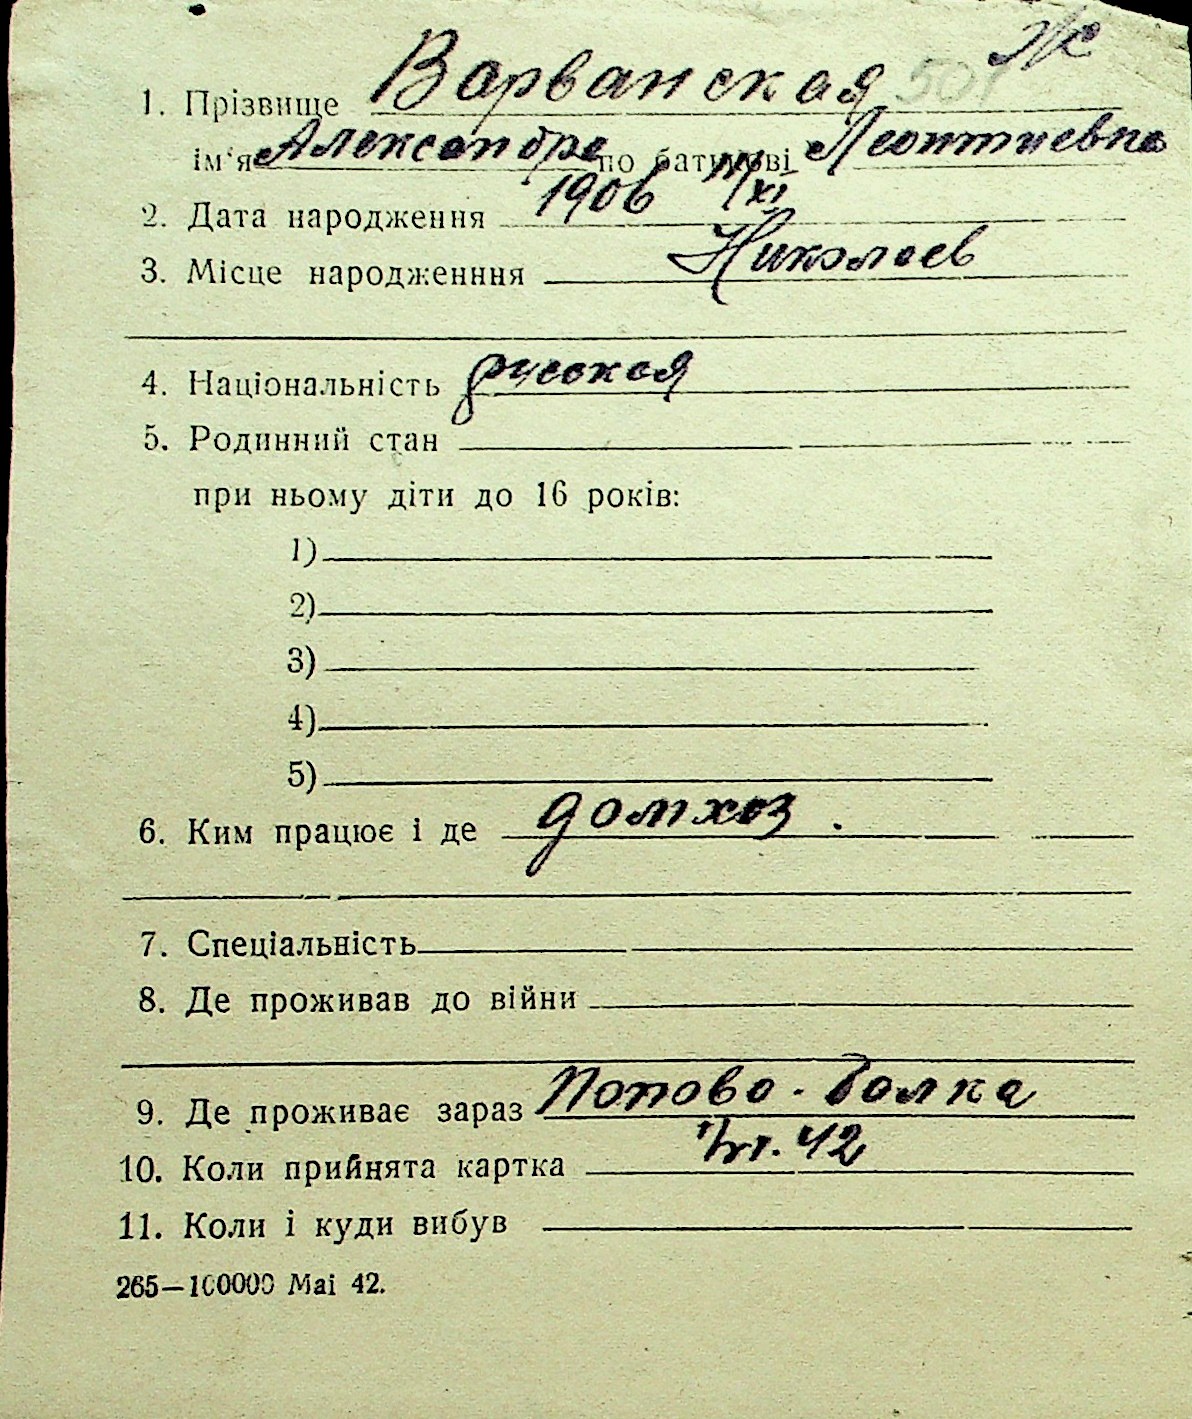 Ж
1. Прізвище Варванская 501
ім'я Александра по батькові Леонтиевна
2. Дата народження 1906 /XI
3. Місце народженння Николаев
4. Національність русская
5. Родинний стан
при ньому діти до 16 років:
1)
2)
3)
4)
5)
6. Ким працює і де домхоз.
7. Спеціальність
8. Де проживав до війни
9. Де проживає зараз Попово-Балка
10. Коли прийнята картка 42
11. Коли і куди вибув
265—100000 Mai 42.